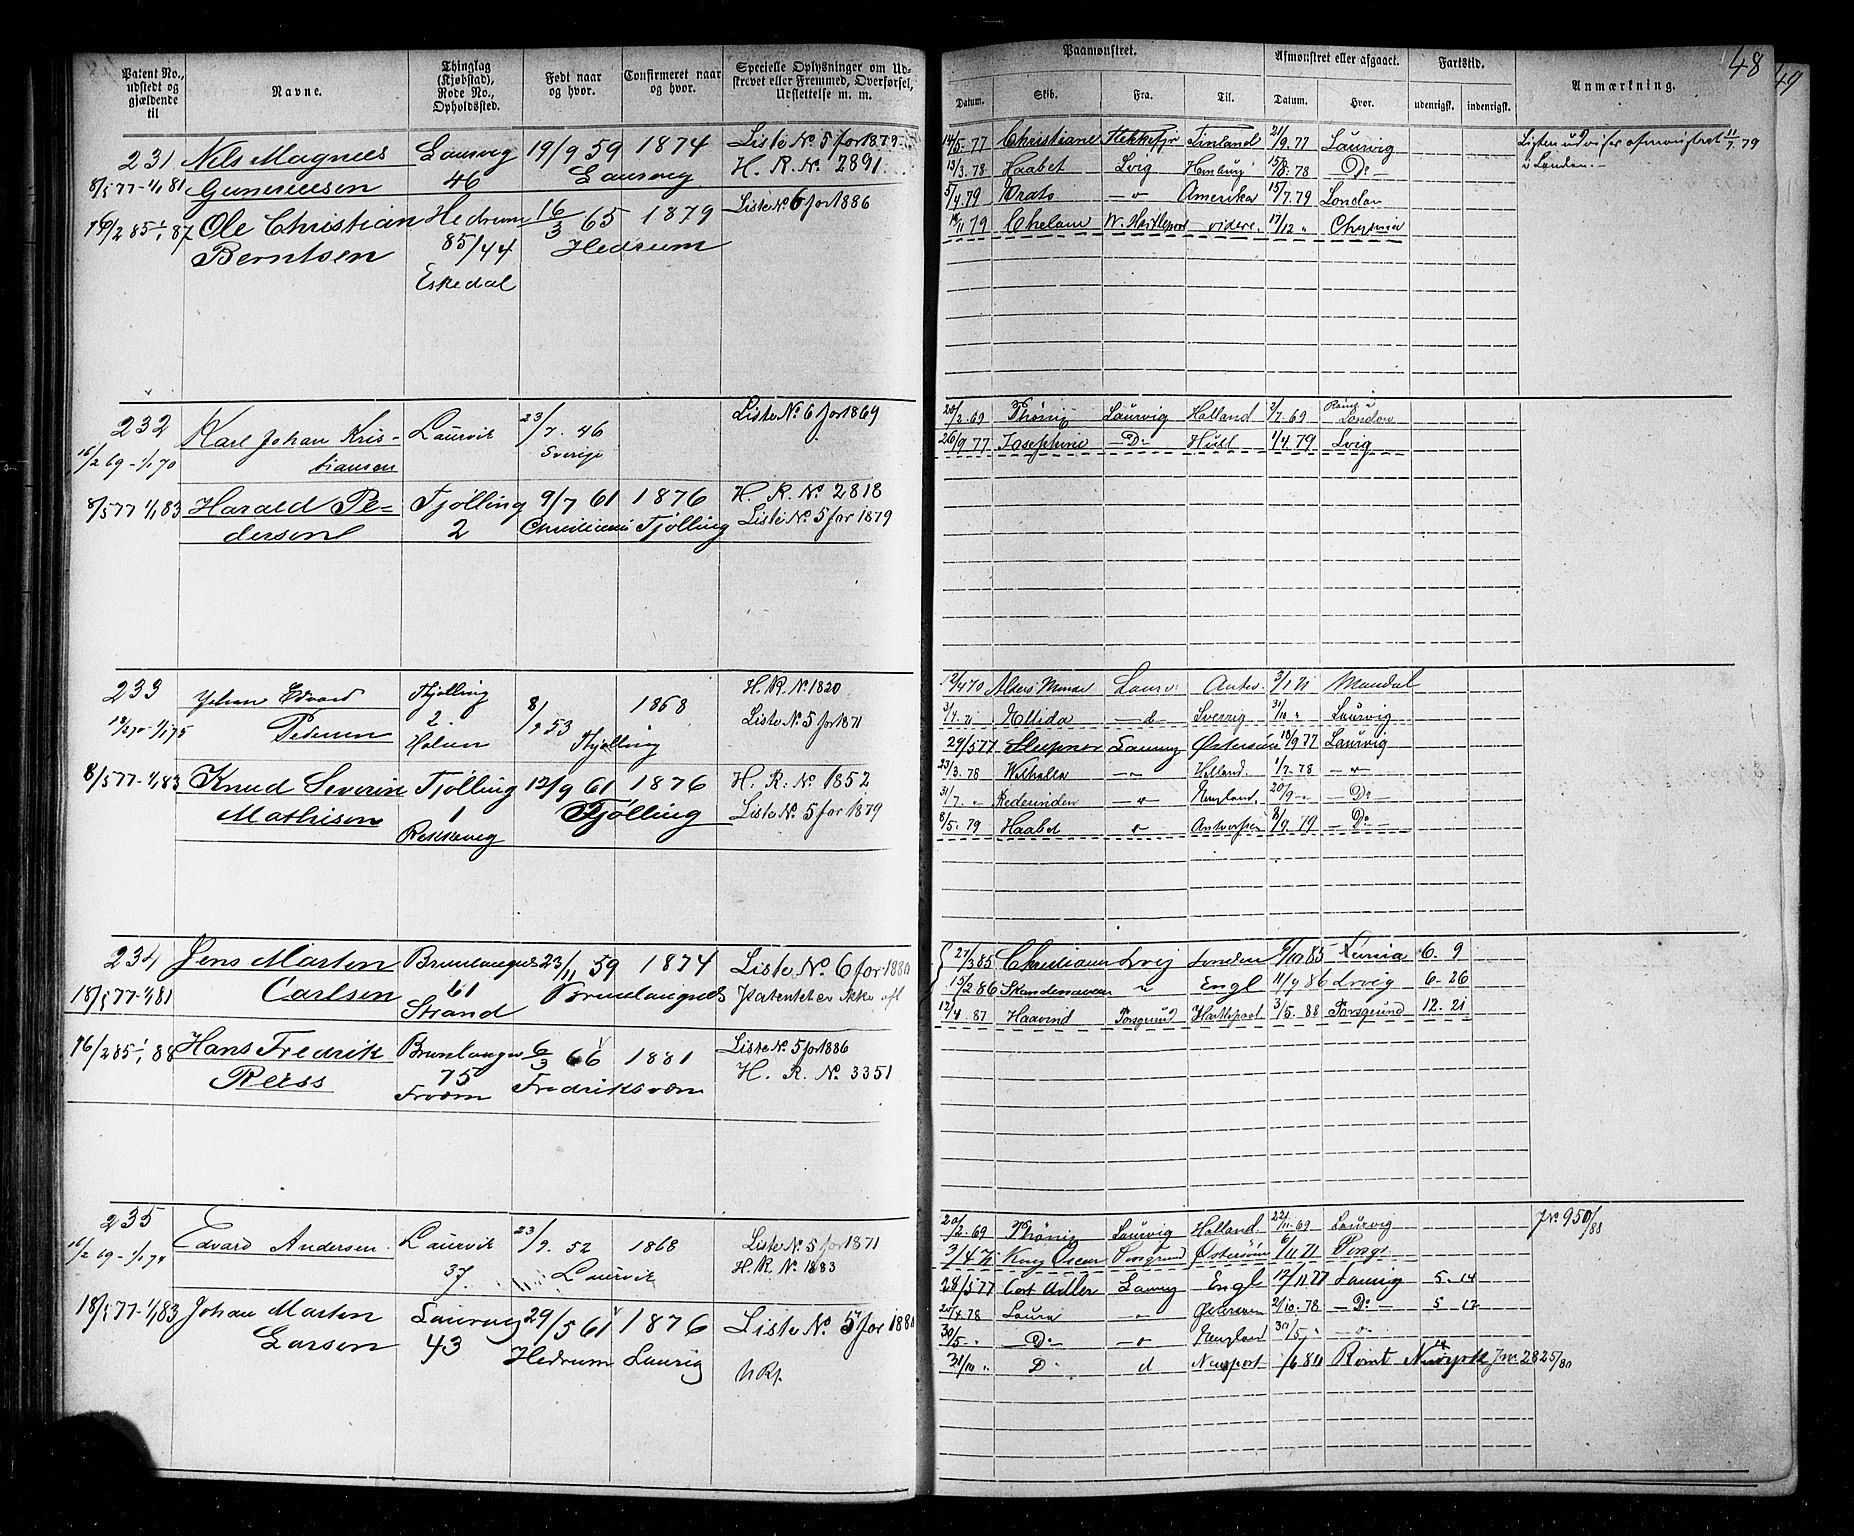 48
49
Patent No., udstedt og gjældende til
Navne.
Thinglag (Kjøbstad), Rode No., Opholdssted.
Født naar og hvor.
Confirmeret naar og hvor.
Specielle Oplysninger om Udskrevet eller Fremmed, Overførsel, Udslettelse m. m.
Paamønstret.
Afmønstret eller afgaaet.
Fartstid.
Anmærkning.
Datum. Skib. Fra. Til. Datum. Hvor. udenrigsk. indenrigsk.
231 Nils Magnus Laurvig 19/9 59 1874 Liste No 5 for 1879
8/5 77-1/1 81 Gunersen 46 Laurvig H. R. No 2891
16/2 85 1/1 87 Ole Christian Hedrum 16/3 65 1879 Liste No 6 for 1886
Berntsen 85/44 Hedrum
Eskedal
14/5 77 Christiane Hekkefjr Finland 21/9 77 Laurvig
13/3 78 Haabet Lvig 15/8 78 Do
5/4 79 Erato Amerika 15/7 79 London
79 W. Hartlepool videre 17/12 "
11/7 79
i London
232 Karl Johan Kris- Laurvik 23/7 46 Liste No 6 for 1869
16/2 69 - 1/1 70 tiansen Sverige
8/5 77 1/1 83 Harald Pe- Tjølling 9/7 61 1876 H. R. No 2818
dersen 2 Tjølling Liste No 5 for 1879
20/2 69 Phønix Laurvig Holland 2/7 69 London
26/9 77 Josephine Do Hull 1/4 79 Lvig
233 Johan Edvard Thjølling 8/9 53 1868 H. R. No 1820
1/1 75 Pedersen 2. Thjølling Liste No 5 for 1871
8/5 77-1/1 83 Knud Severin Tjølling 12/9 61 1876 H. R. No 1852
Mathisen 1 Tjølling Liste No 5 for 1879
12/4 70 Laurv. Antw. 3/1 71 Mandal
Sverrig 31/10 " Laurvig
29/5 77 Sleipner Laurvig Østersøen 18/9 77 Laurvig
23/3 78 Walhalla Holland 1/7 78
31/7 " England 20/9 Do
8/5 79 Haabet Antwerpen 8/9 79 Do
234 Jens Marten Brunlangnes 23/11 59 1874 Liste No 6 for 1880
18/5 77-1/1 81 Carlsen 61 Brunlangnes Patentet er ikke afl
Strand
16/2 85 1/1 88 Hans Fredrik Brunlangnes 6/3 66 1881 Liste No 5 for 1886
Reiss 75 Fredriksværn H. R. No 3351
Frværn
27/3 85 Christiane Lvig London 6/10 85 6. 9
15/2 86 Engl 11/9 86 Lrvig 6-26
12/4 87 Haavind Porsgrund Hartlepool 3/5 88 Porsgrund 12. 21
235 Edvard Andersen Laurvik 23/9 52 1868 Liste No 5 for 1871
16/2 69 37 Laurvik H. R. No 1883
18/5 77-1/1 83 Johan Marten Laurvig 29/5 61 1876 Liste No 5 for 1880
Larsen 43 Hedrum Laurvig
20/2 69 Phønix Laurvig Holland 22/11 69 Laurvig Jr. 950/88
3/4 71 Kong Oscar Porsgrund Østersøen 6/11 71 Porsgr
28/5 77 Cort Adler Laurvig Engl 12/11 77 Laurvig 5-14
20/4 78 Laura Østersøen 2/10 78 Do 5 12
30/5 " Do England
31/10 " D d Newport 1/6 80 Rømt Jnr 2825/80